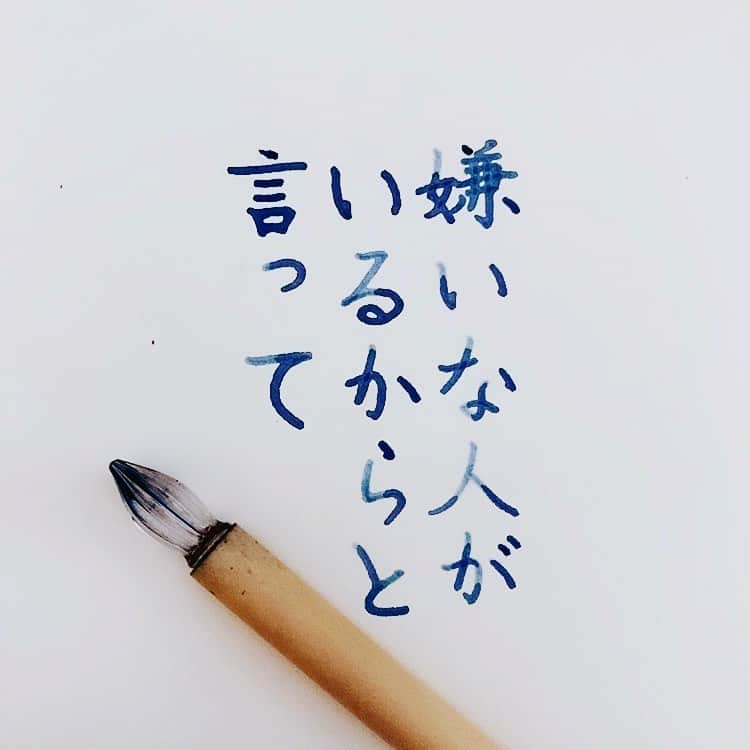 嫌いな人が
いるからと
言って